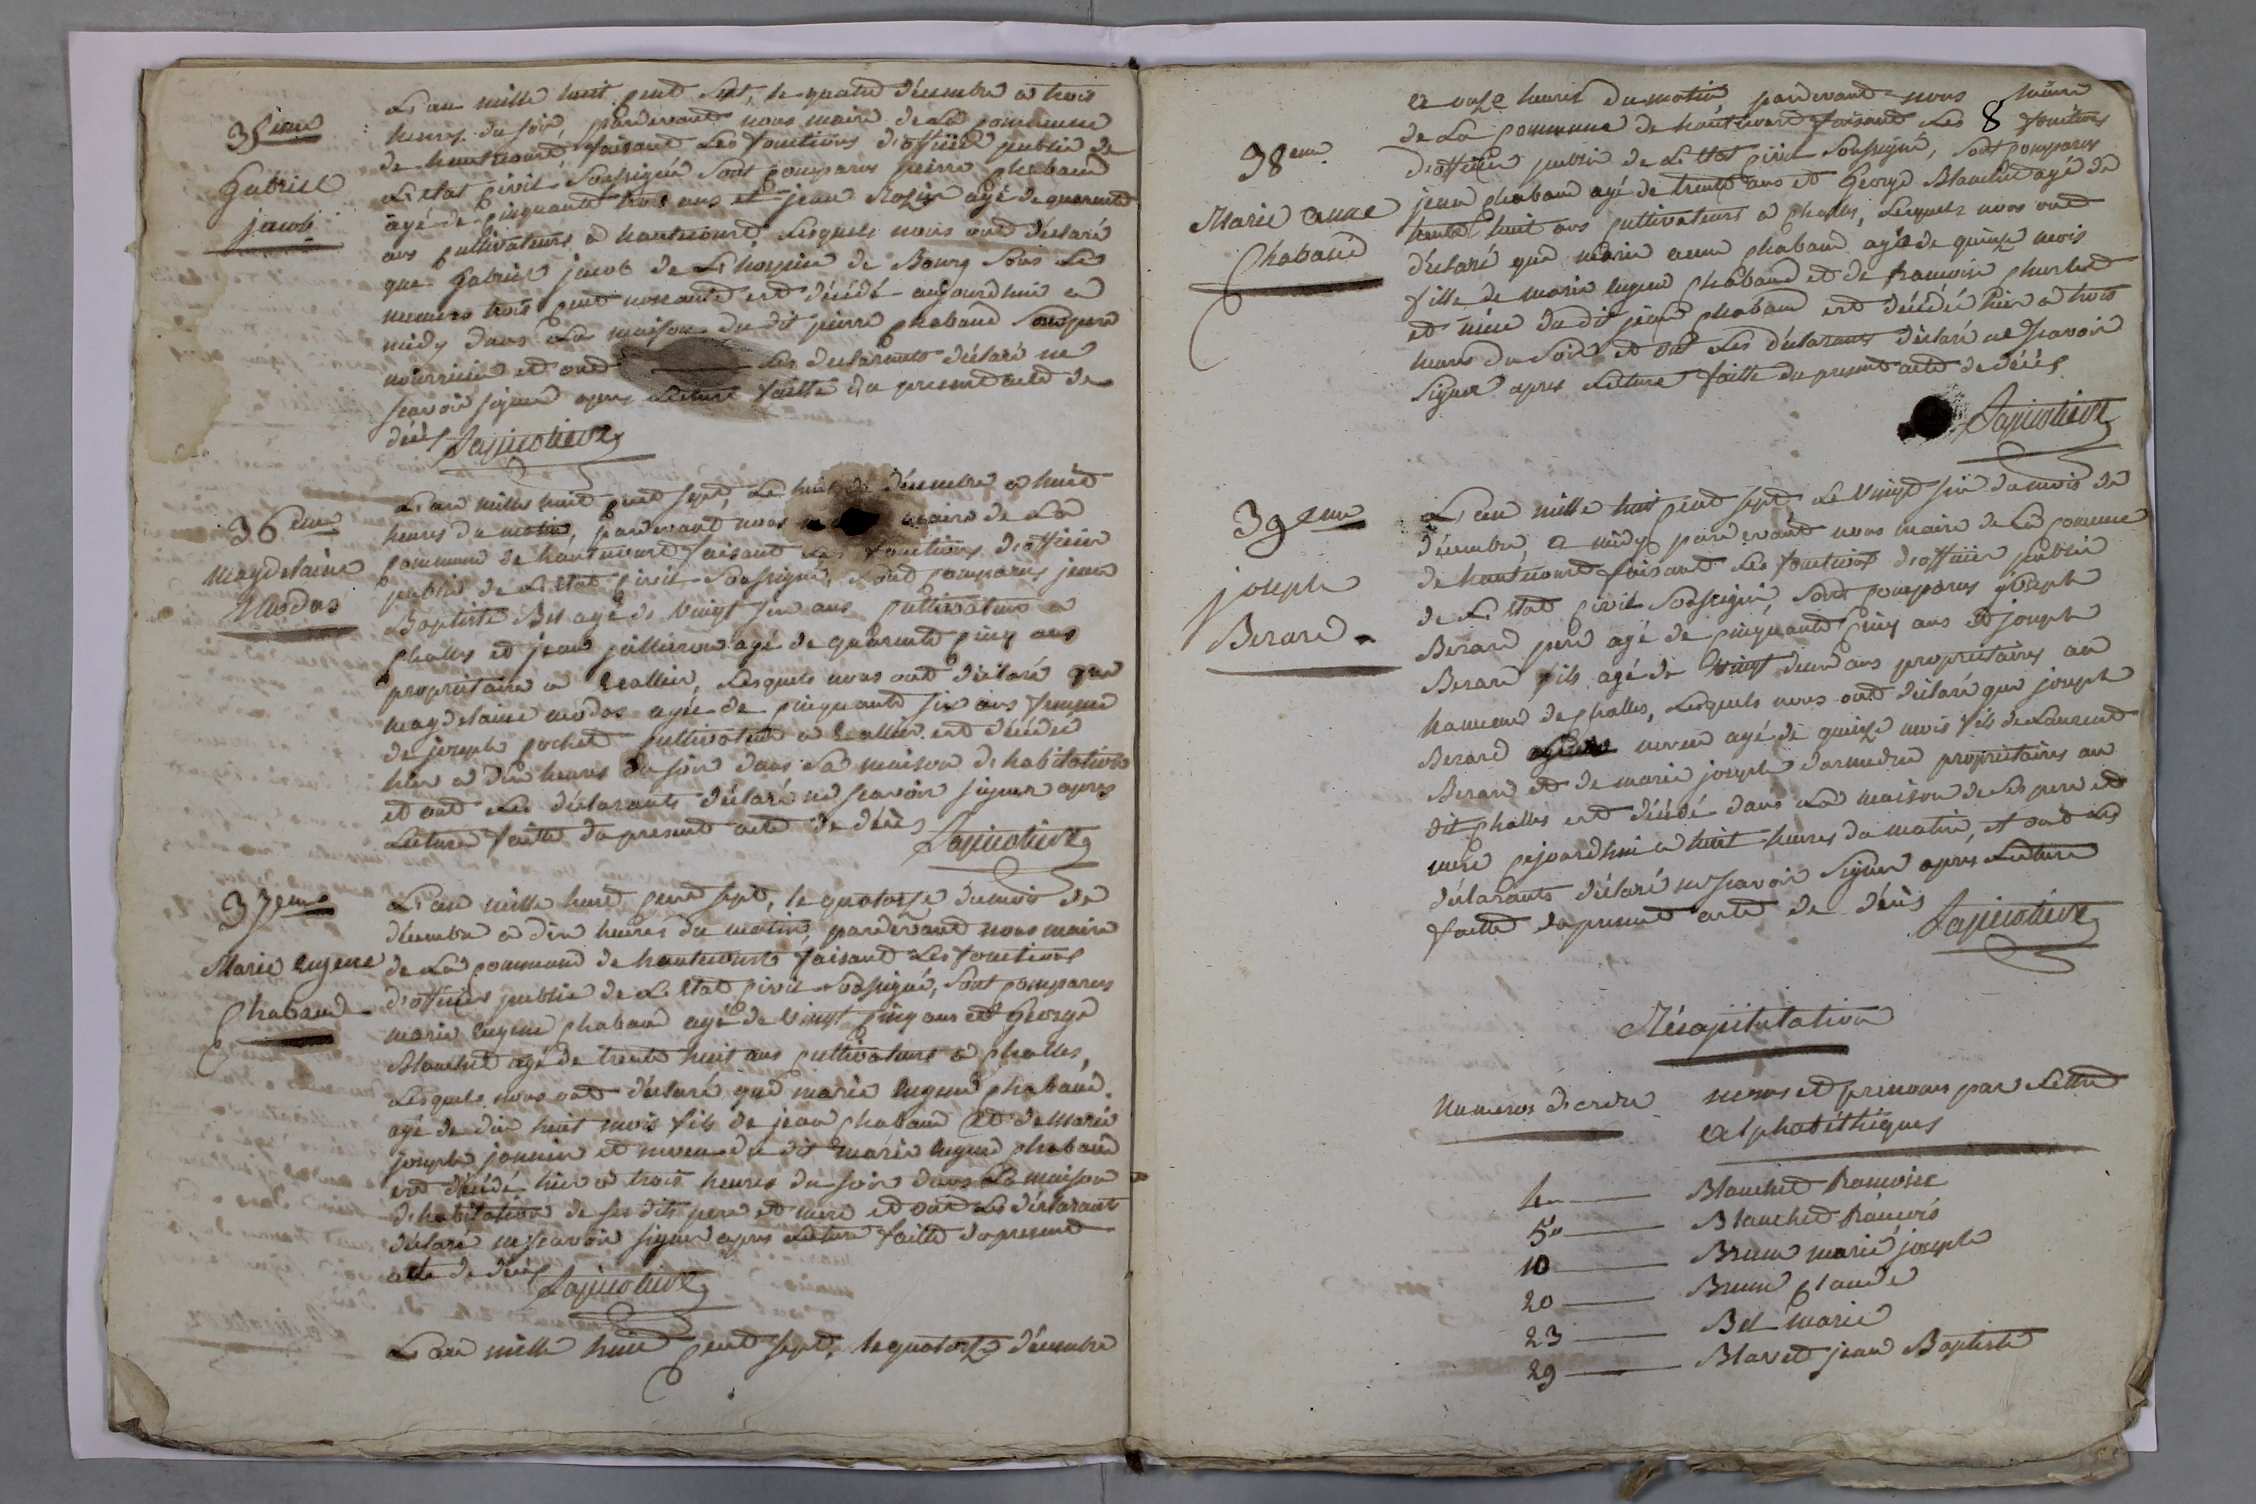 35eme
Gabriel
jacob
L'an mille huit cent sept, le quatre décembre a trois
heures du soir, pardevant nous maire de La commune
de hautecourt, faisant Les fonctions d'officier public de
L'Etat civil soussigné sont comparus pierre chaband
agé de cinquante trois ans et jean Rozier agé de quarente
ans cultivateurs a hautecourt, Lesquels nous ont déclaré
que Gabriel jacob de L'hospice de Bourg sous Le
numero trois cent nonante est décédé aujourdhui a
midy dans La maison du dit pierre chaband son pere
nourricier et ont Les declarants déclaré ne
scavoir signer apres Lecture faitte du present acte de
décès Lapicotiere
36eme
magdelaine
Modas
L'an mille huit cent sept, Le huit de décembre a huit
heures du matin, pardevant nous maire de La
commune de hautecourt faisant Les fonctions d'officier
public de L'Etat civil soussigné, sont comparus jean
Baptiste Bel agé de vingt six ans cultivateur a
challes et jean jullieron agé de quarente cinq ans
propriétaire a Reallier, Lesquels nous ont déclaré que
magdelaine modas agée de cinquante six ans femme
de joseph pochet cultivateur a Reallier est décédé
hier a dix heures du soir dans sa maison d'habitation
et ont Les déclarants déclaré ne scavoir signer apres
Lecture faitte du present acte de décès Lapicotiere
37eme
Marie Eugene
Chaband
L'an mille huit cent sept, le quatorze du mois de
décembre a dix heures du matin, pardevant nous maire
de La commune de hautecourt faisant Les fonctions
d'officier public de L'Etat civil soussigné, sont comparus
marie Eugene chaband agé de vingt cinq ans et George
Blanchet agé de trente huit ans cultivateurs a challes,
Lesquels nous ont déclaré que marie Eugene chaband
agé de dix huit mois fils de jean chaband et de Marie
joseph jannin et neveu du dit marie Eugene chaband
est décédé hier a trois heures du soir dans La maison
d'habitation de ses dits pere et mere et ont Les déclarants
déclaré ne scavoir signer apres Lecture faitte du present
acte de décès Lapicotiere
L'an mille huit cent sept, le quatorze décembre
8
38eme
Marie anne
Chaband
a onze heures du matin pardevant nous maire
de La commune de hautecourt faisant Les fonctions
d'officier public de L'Etat civil soussigné, sont comparus
jean chaband agé de trente ans et George Blanchet agé de
trente huit ans cultivateurs a challes, Lesquels nous ont
déclaré que marie anne chaband agée de quinze mois
fille de marie Eugene chaband et de francoise churlet
et niéce du dit jean chaband est décédé hier a trois
heures du soir et ont Les déclarants déclaré ne scavoir
signer apres Lecture faitte du present acte de décès
Lapicotiere
39eme
joseph
Berard
L'an mille huit cent sept Le vingt six du mois de
décembre, a midy pardevant nous maire de La commune
de hautecourt faisant Les fonctions d'officier public
de L'Etat civil soussigné, sont comparus joseph
Berard pere agé de cinquante cinq ans et joseph
Berard fils agé de vingt deux ans proprietaires au
hameau de challes, Lesquels nous ont déclaré que joseph
Berard neveu agé de quinze mois fils de Laurent
Berard et de marie joseph darmedru propriétaires au
dit challes est décédé dans La maison de ses pere et
mere cejourdhui a huit heures du matin, et ont Les
déclarants déclaré ne scavoir signer apres Lecture
faitte du present acte de décès Lapicotiere
Récapitulation
Numeros d'ordre noms et prenoms par Lettre
alphabéthiques
4 Blanchet francoise
5 Blanchet francois
10 Brun marie joseph
20 Brun claude
23 Bel marie
29 Blavet jean Baptiste